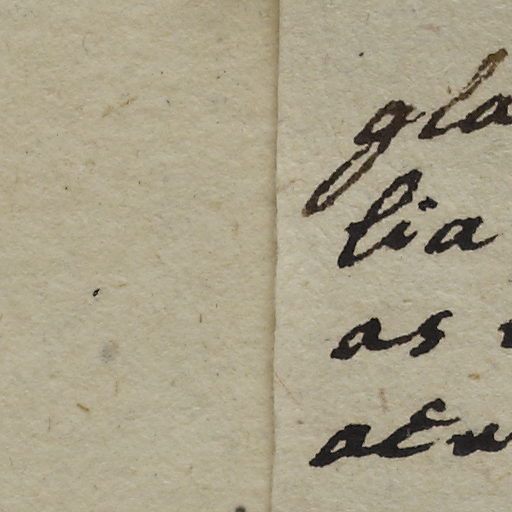 gla
lia
as
aEu